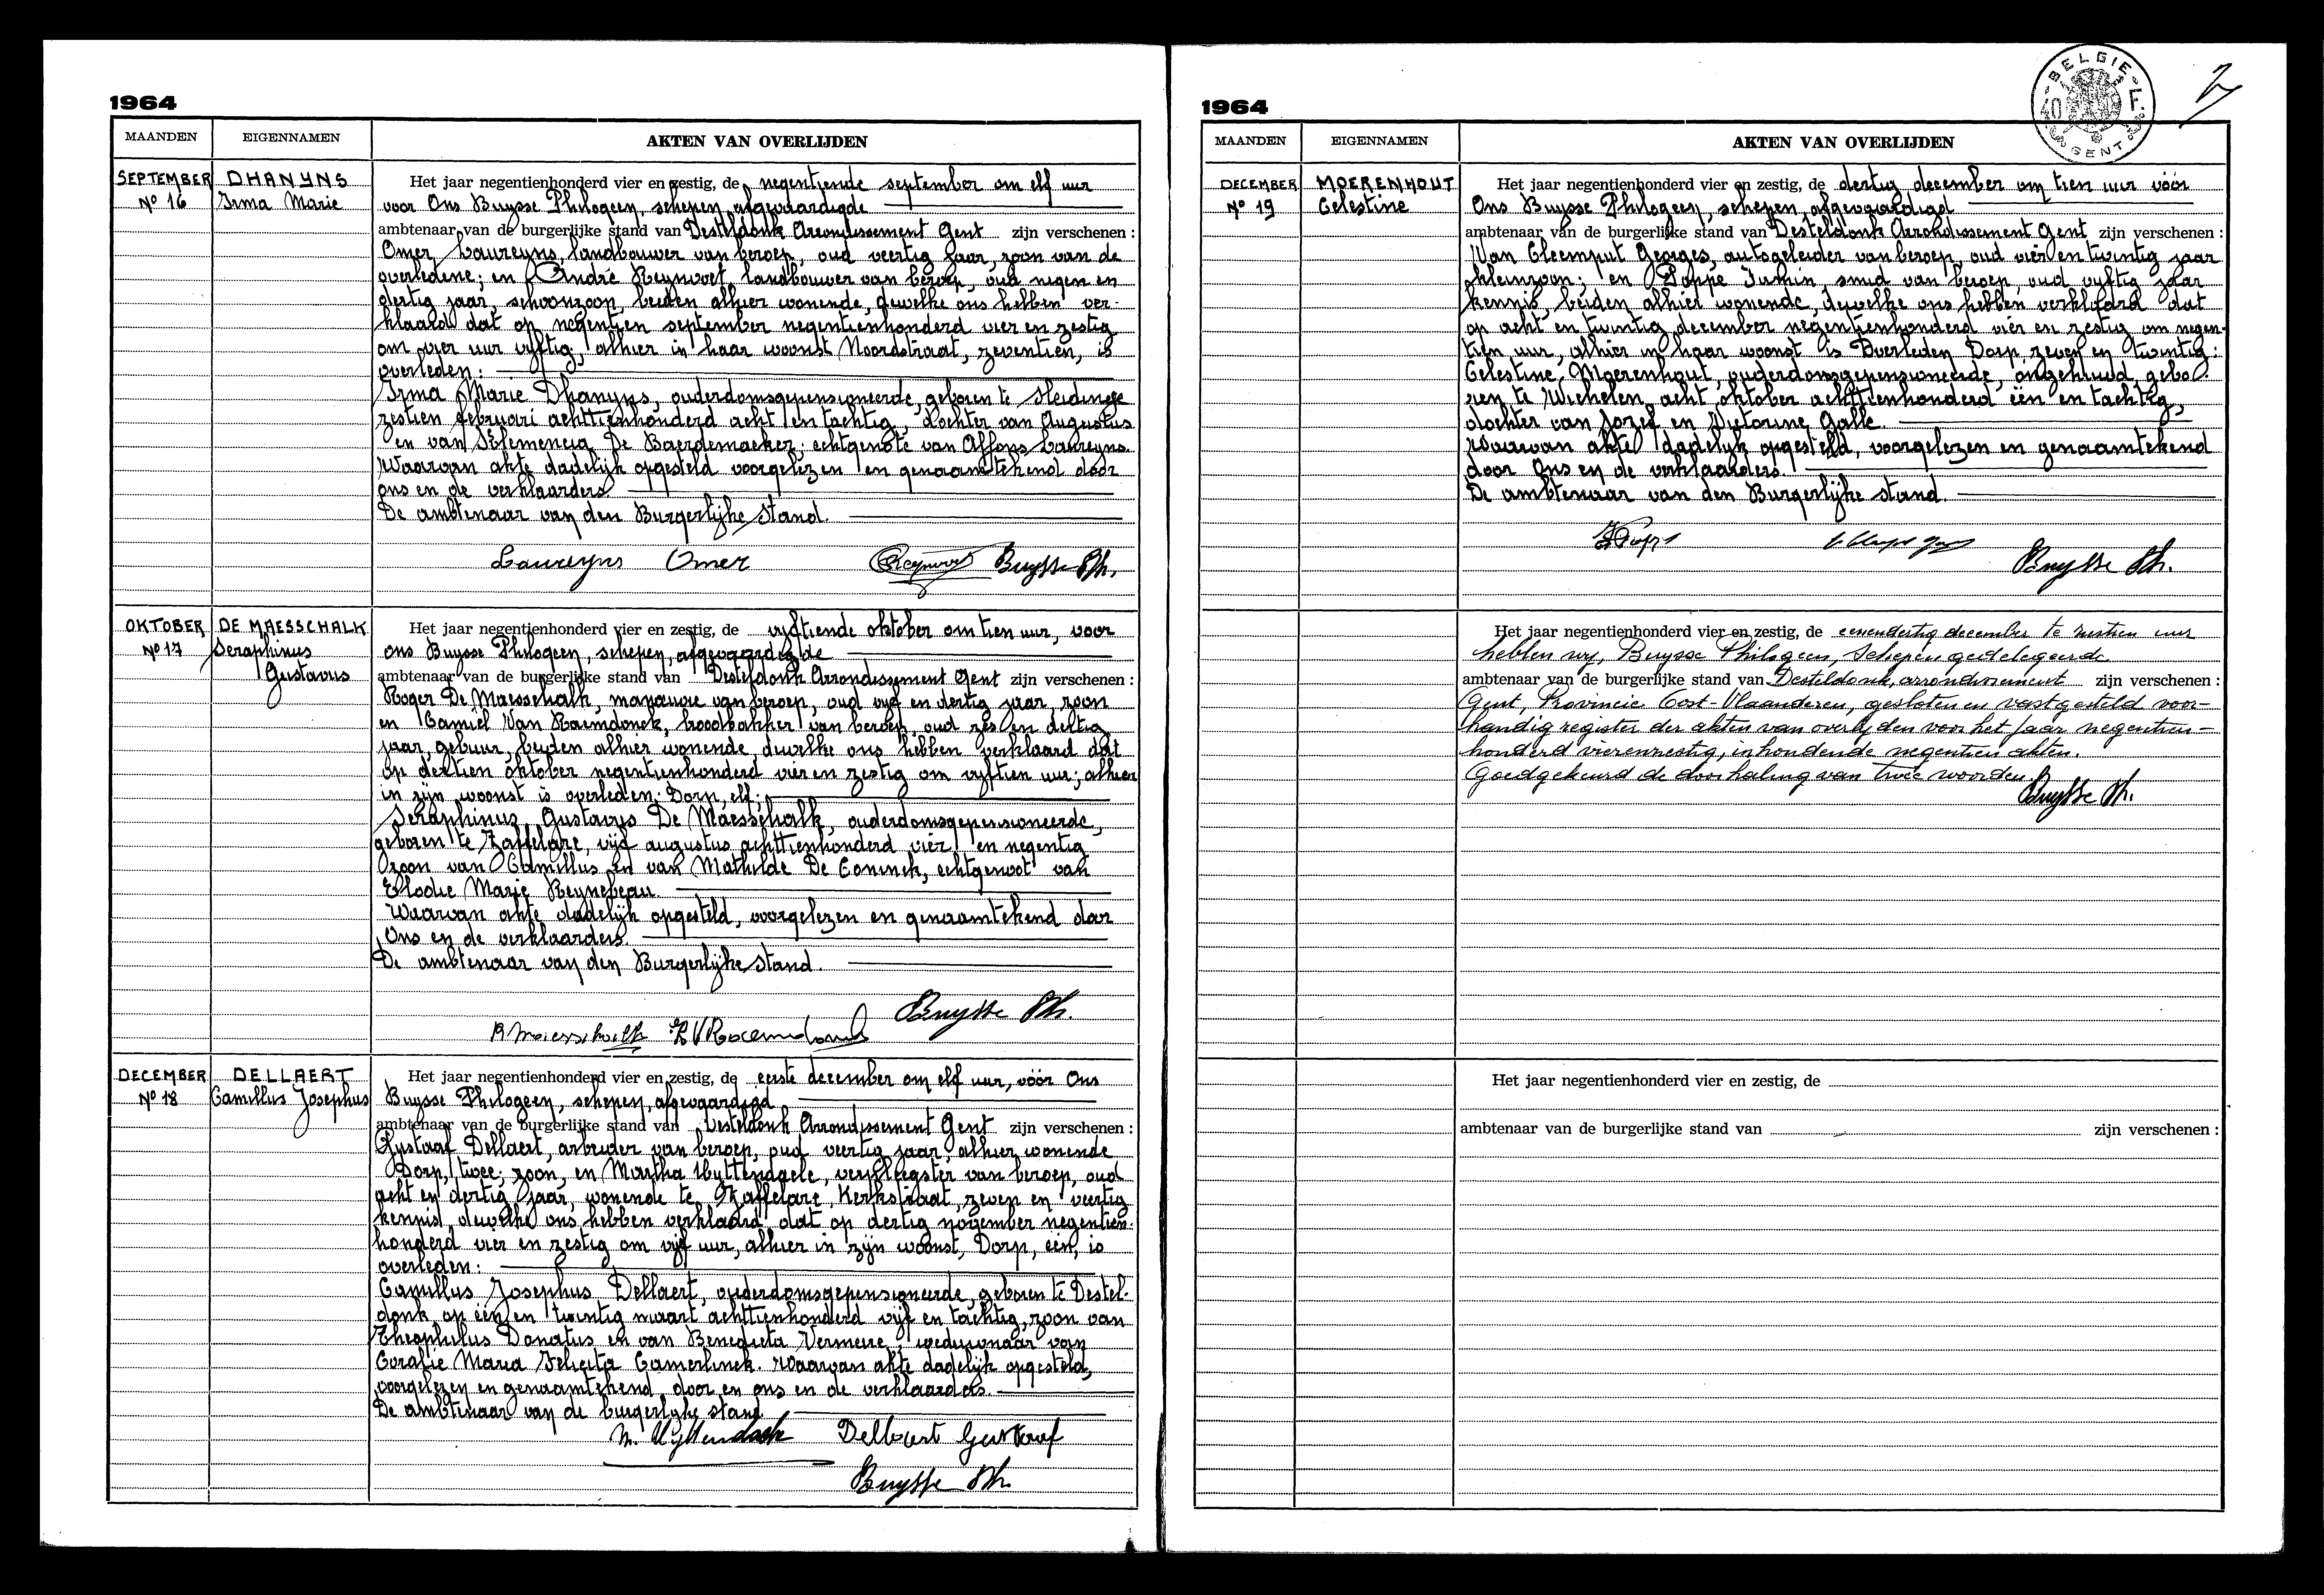 1964
MAANDEN
EIGENNAMEN
AKTEN VAN OVERLIJDEN
SEPTEMBER
Nº 16
DHANYNS
Irma Marie
Het jaar negentienhonderd vier en zestig, de negentiende september om elf uur
voor Ons Buysse Philogeen, schepen, afgevaardigde
ambtenaar van de burgerlijke stand van Desteldonk Arrondissement Gent zijn verschenen :
Omer Laureyns, landbouwer van beroep, oud veertig jaar, zoon van de
overledene; en André Reynvoet, landbouwer van beroep, oud negen en
dertig jaar, schoonzoon, beiden alhier wonende, dewelke ons hebben ver-
klaard dat op negentien september negentienhonderd vier en zestig
om vier uur vyftig, alhier in haar woonst Noordstraat, zeventien, is
overleden :
Irma Marie Dhanyns, ouderdomsgepensioneerde, geboren te Sleidinge
zestien februari achttienhonderd acht en tachtig, dochter van Augustus
en van Clemencia De Baerdemaeker; echtgenote van Alfons Laureyns.
Waarvan akte dadelijk opgesteld voorgelezen en genaamtekend door
ons en de verklaarders
De ambtenaar van den Burgerlijke stand.
Laureyns Omer
Buysse Ph.
OKTOBER
Nº 17
DE MAESSCHALK
Seraphinus
Gustavus
Het jaar negentienhonderd vier en zestig, de vyftiende oktober om tien uur, voor
ons Buysse Philogeen, schepen, afgevaardigde
ambtenaar van de burgerlijke stand van Desteldonk Arrondissement Gent zijn verschenen :
Roger De Maesschalk, manauvre van beroep, oud vijf en dertig jaar, zoon
en Camiel Van Raemdonck, broodbakker van beroep, oud zes en dertig
jaar, gebuur, beiden alhier wonende, dewelke ons hebben verklaard dat
op dertien oktober negentienhonderd vier en zestig om vyftien uur; alhier
in zijn woonst is overleden; Dorp, elf;
Seraphinus Gustavus De Maesschalk, ouderdomsgepensioneerde,
geboren te Zaffelare, vijf augustus achttienhonderd vier en negentig
zoon van Camillus en van Mathilde De Coninck, echtgenoot van
Elodie Marie Reynebeau.
Waarvan akte dadelijk opgesteld, voorgelezen en genaamtekend door
Ons en de verklaarders.
De ambtenaar van den Burgerlijke stand.
Buysse Ph.
R Maesschalk
DECEMBER
Nº 18
DELLAERT
Camillus Josephus
Het jaar negentienhonderd vier en zestig, de eerste december om elf uur, vóór Ons
Buysse Philogeen, schepen, afgevaardigd
ambtenaar van de burgerlijke stand van Desteldonk Arrondissement Gent zijn verschenen :
Gustaaf Dellaert, arbeider van beroep, oud veertig jaar, alhier wonende
Dorp, twee; zoon, en Martha Uyttendaele, verpleegster van beroep, oud
acht en dertig jaar, wonende te Zaffelare, Kerkstraat, zeven en veertig
kennis, dewelke ons hebben verklaard, dat op dertig november negentien-
honderd vier en zestig om vijf uur, alhier in zijn woonst, Dorp, één, is
overleden :
Camillus Josephus Dellaert, ouderdomsgepensioneerde, geboren te Destel-
donk op één en twintig maart achttienhonderd vijf en tachtig, zoon van
Theophilus Donatus en van Benedicta Vermeire, weduwnaar van
Coralie Maria Felicita Camerlinck. Waarvan akte dadelijk opgesteld,
voorgelezen en genaamtekend, door en ons en de verklaarders.
De ambtenaar van de burgerlyke stand
M. Uyttendaele Dellaert Gustaaf
Buysse Ph.
1964
BELGIE
40 F
GENT
MAANDEN
EIGENNAMEN
AKTEN VAN OVERLIJDEN
DECEMBER
Nº 19
MOERENHOUT
Celestine
Het jaar negentienhonderd vier en zestig, de dertig december om tien uur vóór
Ons Buysse Philogeen, schepen, afgevaardigd
ambtenaar van de burgerlijke stand van Desteldonk Arrondissement Gent zijn verschenen :
Van Cleemput Georges, autogeleider van beroep, oud vier en twintig jaar
kleinzoon; en Poppe Firmin, smid van beroep, oud vyftig jaar
kennis, beiden alhier wonende, dewelke ons hebben verklaard dat
op acht en twintig december negentienhonderd vier en zestig om negen-
tien uur, alhier in haar woonst is Overleden Dorp, zeven en twintig:
Celestine Moerenhout, ouderdomsgepensioneerde, ongehuwd, gebo-
ren te Wichelen, acht oktober achttienhonderd één en tachtig,
dochter van Jozef en Victorine Galle.
Waarvan akte dadelyk opgesteld, voorgelezen en genaamtekend
door Ons en de verklaarders.
De ambtenaar van den Burgerlijke stand.
Buysse Ph.
Het jaar negentienhonderd vier en zestig, de eenendertig december te zestien uur
hebben wy, Buysse Philogeen, Schepen gedelegeerde
ambtenaar van de burgerlijke stand van Desteldonk, arrondissement zijn verschenen :
Gent, Provincie Oost-Vlaanderen, gesloten en vastgesteld voor-
handig register der akten van overlyden voor het jaar negentien-
honderd vierenzestig, inhoudende negentien akten.
Goedgekeurd de doorhaling van twee woorden.
Buysse Ph.
Het jaar negentienhonderd vier en zestig, de
ambtenaar van de burgerlijke stand van zijn verschenen :